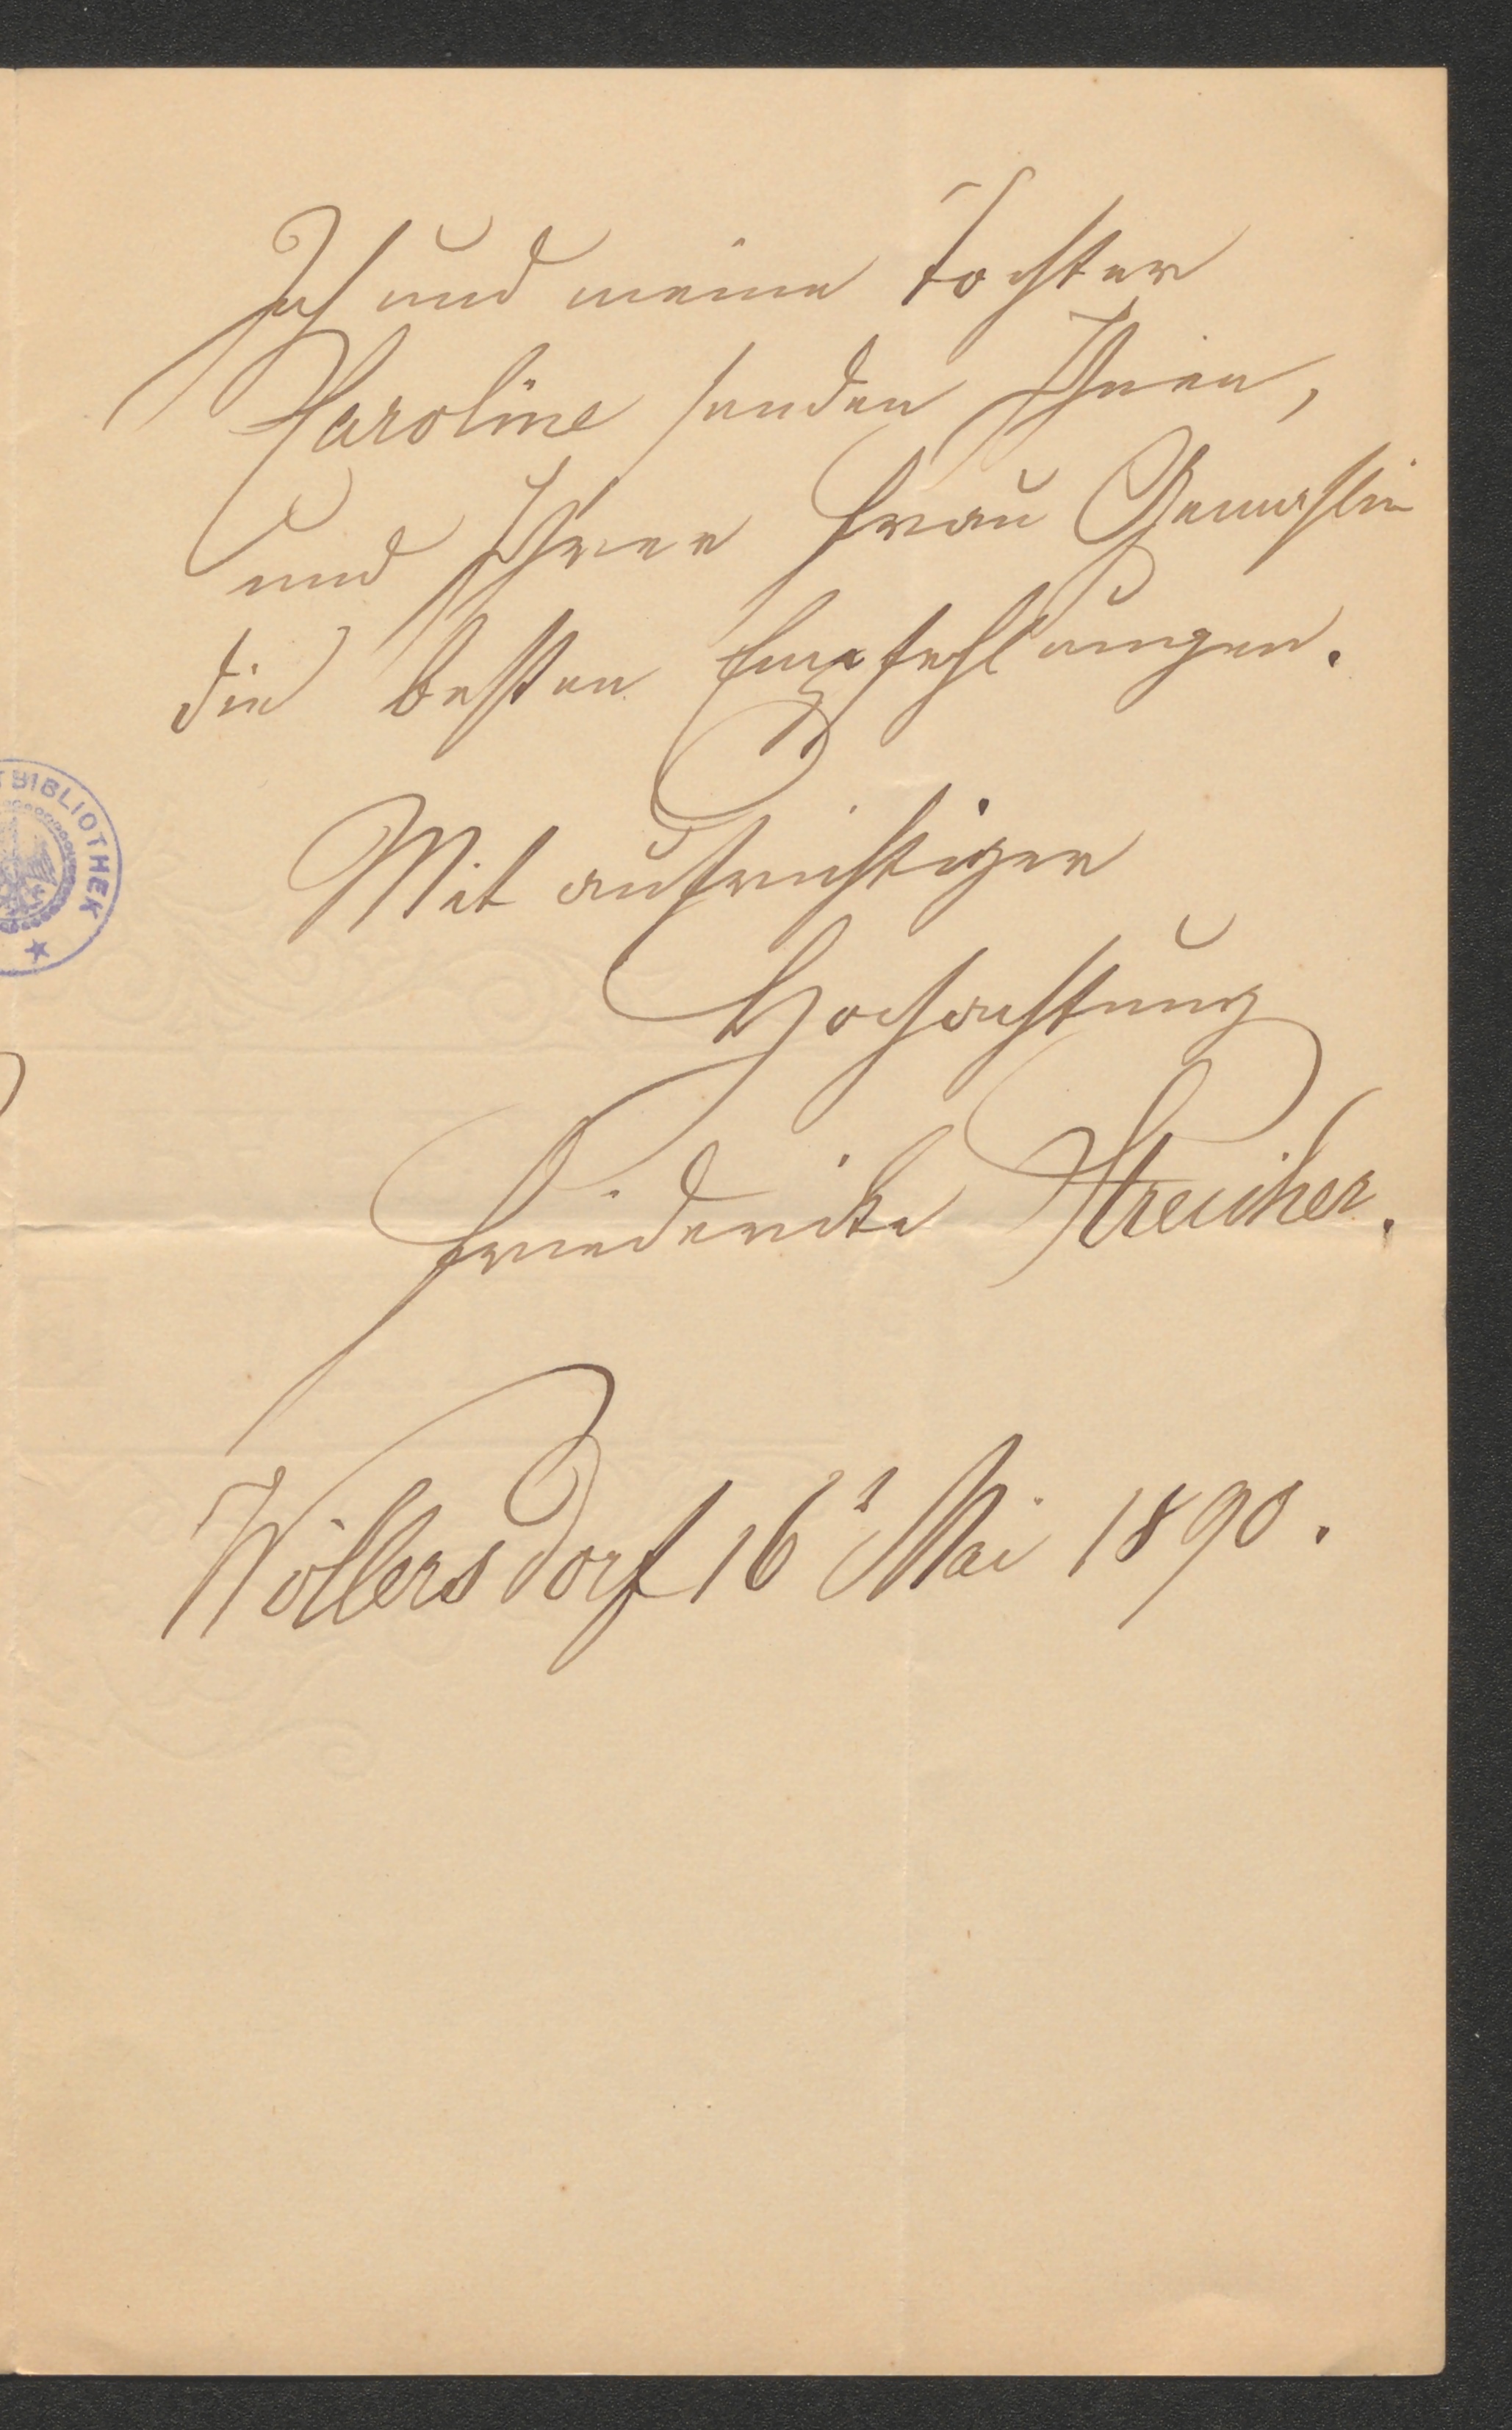 Ich und meine Tochter
Karoline senden Ihnen,
und Ihrer Frau Gemahlin
die besten Empfehlungen.
Mit aufrichtiger
Hochachtung
Friederike Streicher.
Wöllersdorf 16t Mai 1890.
TBIBLIOTHEK